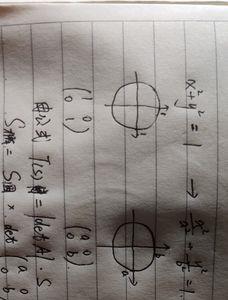 x²+y²=1 → x²/a²+y²/b²=1
1 1 b a
(1 0
0 1) (a 0
0 b)
由公式 T(S) = |detA|·S
S椭 = S圆 × det (a 0
0 b